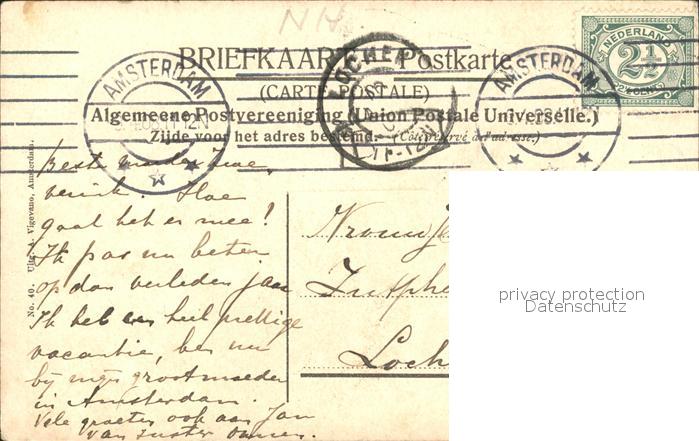 NH
BRIEFKAART Postkarte
(CARTE POSTALE)
Algemeene Postvereeniging (Union Postale Universelle.)
Zijde voor het adres bestemd. (Côté réservé à l'adresse.)
AMSTERDAM
12N
LOCHEM
11-12
AMSTERDAM
NEDERLAND
2½
2½ CENT
No. 40. Uitg. A. Vigevano, Amsterdam.
Beste
Hoe
gaat het er mee!
Ik pas nu beter
op dan verleden jaar
Ik heb een heel prettige
vacantie, ben nu
bij mijn grootmoeder
in Amsterdam.
Vele groeten ook aan Jan
van zuster
Zutphe
Loch
privacy protection
Datenschutz